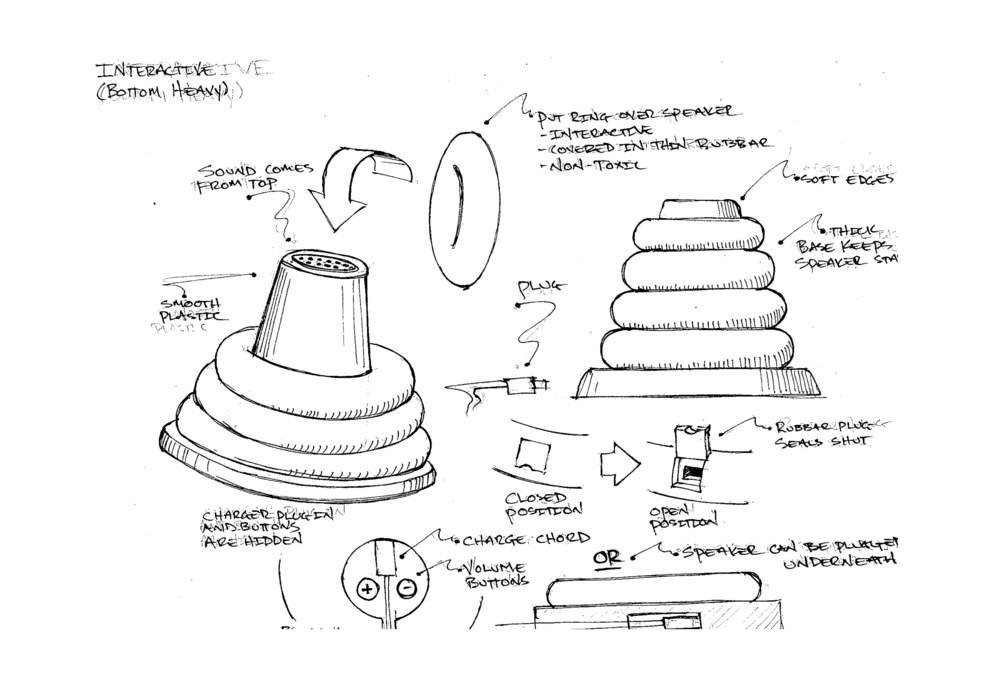 INTERACTIVE
(BOTTOM, HEAVY)
PUT RING OVER SPEAKER
- INTERACTIVE
- COVERED IN THIN RUBBAR
- NON-TOXIC
SOUND COMES
FROM TOP
SOFT EDGES
THICK
BASE KEEPS
SPEAKER STA
SMOOTH
PLASTIC
PLUG
RUBBAR PLUG
SEALS SHUT
CLOSED
POSITION
OPEN
POSITION
CHARGER PLUG IN
AND BUTTONS
ARE HIDDEN
CHARGE CHORD
VOLUME
BUTTONS
+ -
OR
SPEAKER CAN BE PLUGGED
UNDERNEATH